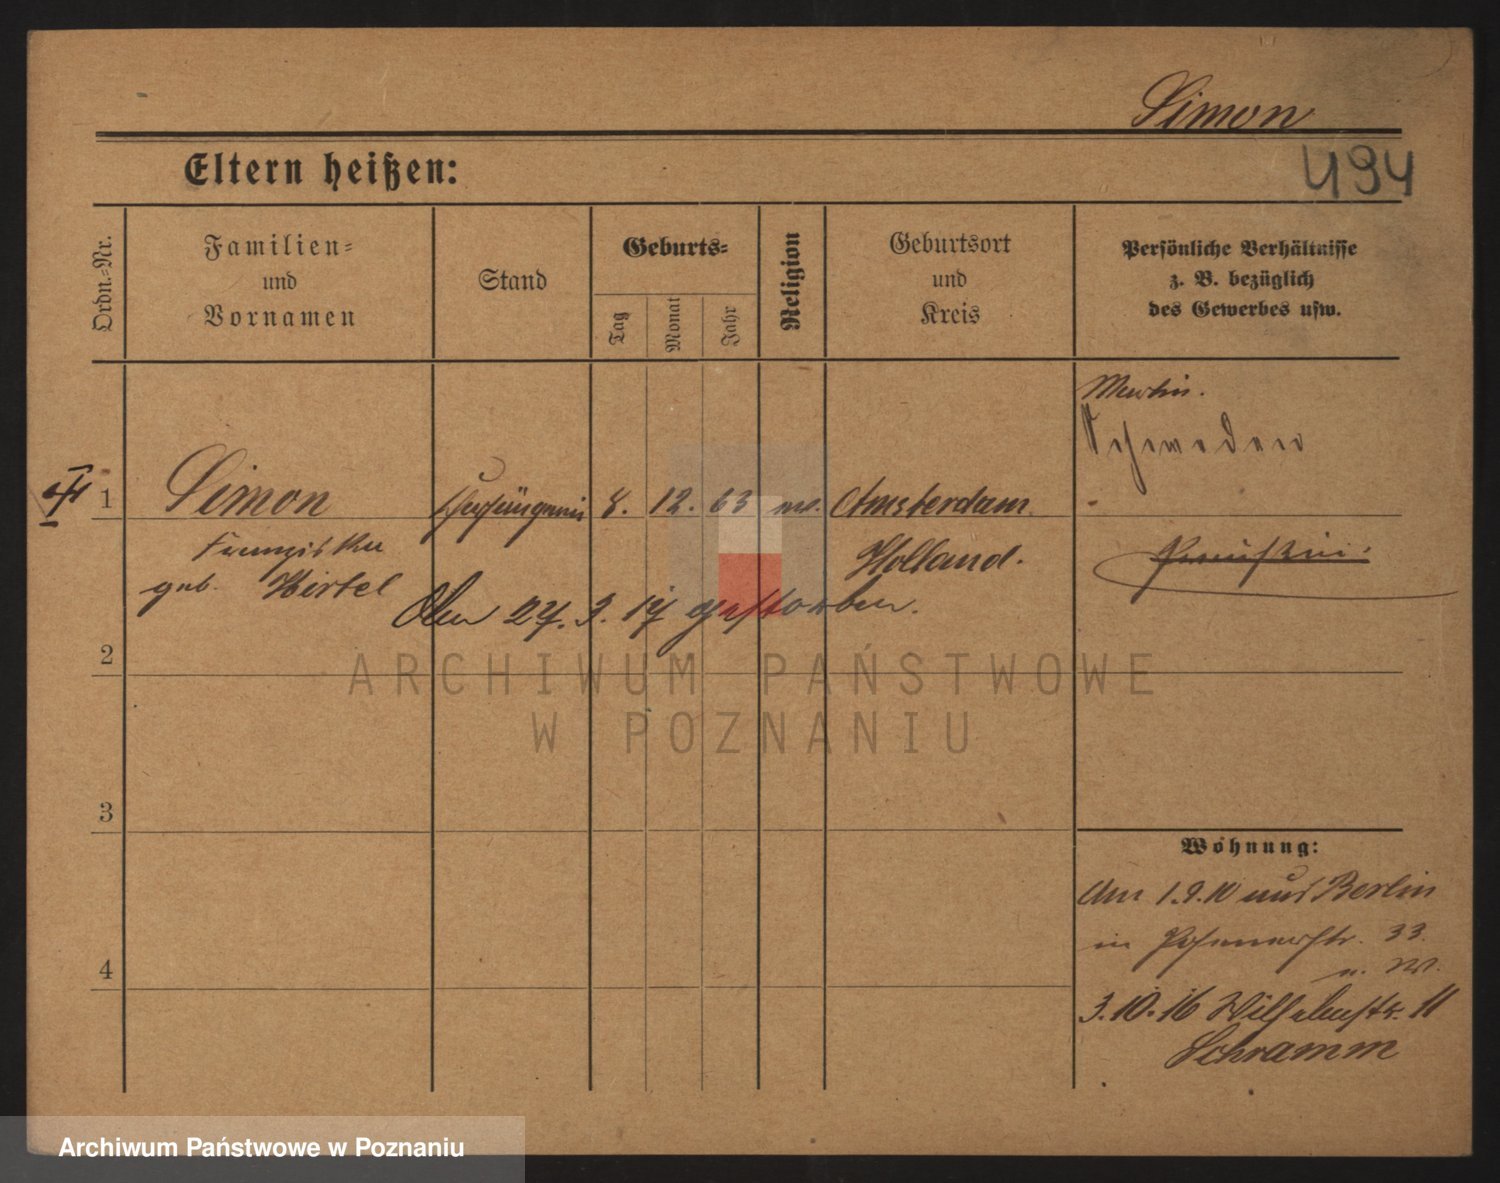 Simon
494
Eltern heißen:
Ordn.-Nr.
Familien-
und
Vornamen
Stand
Geburts-
Tag
Monat
Jahr
Religion
Geburtsort
und
Kreis
Persönliche Verhältnisse
z. B. bezüglich
des Gewerbes usw.
Schweden
1
Simon
8. 12. 63
Amsterdam
Holland.
Franziska
geb. Hirtel
Den 27. 3. 17 gestorben.
2
3
4
Wohnung:
Am 1.9.10 aus Berlin
in 33.
3.10.16 Wilhelmstr. 11
Schramm
ARCHIWUM PAŃSTWOWE
W POZNANIU
Archiwum Państwowe w Poznaniu